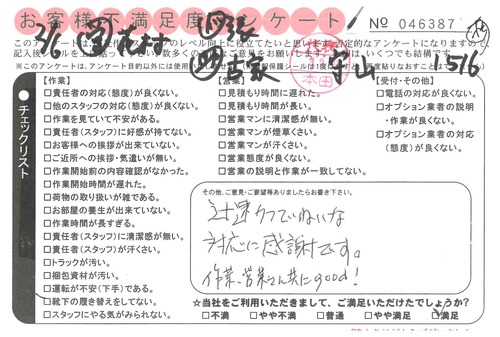 お客様不満足度アンケート
No 046387
※このアンケートは、アンケート目的以外には使用い
3/6
1516
チェックリスト
【作業】
□責任者の対応(態度)が良くない。
□他のスタッフの対応(態度)が良くない。
□作業を見ていて不安がある。
□責任者(スタッフ)に好感が持てない。
□お客様への挨拶が出来ていない。
□ご近所への挨拶・気遣いが無い。
□作業開始前の内容確認がなかった。
□作業開始時間が遅れた。
□荷物の取り扱いが雑である。
□お部屋の養生が出来ていない。
□作業時間が長すぎる。
□責任者(スタッフ)に清潔感が無い。
□責任者(スタッフ)が汗くさい。
□トラックが汚い。
□梱包資材が汚い。
□運転が不安(下手)である。
□靴下の履き替えをしてない。
□スタッフにやる気がみられない。
【営業】
□見積もり時間に遅れた。
□見積もり時間が長い。
□営業マンに清潔感が無い。
□営業マンが煙草くさい。
□営業マンが汗くさい。
□営業態度が良くない。
□営業の説明と作業が一致してない。
【受付・その他】
□電話の対応が良くない。
□オプション業者の説明
・作業が良くない。
□オプション業者の対応
(態度)が良くない。
その他、ご意見・ご要望等ありましたらお書き下さい。
迅速かつていねいな
対応に感謝です。
作業、営業さん共にgood!
☆当社をご利用いただきまして、ご満足いただけたでしょうか?
□不満 □やや不満 □普通 □やや満足 □満足